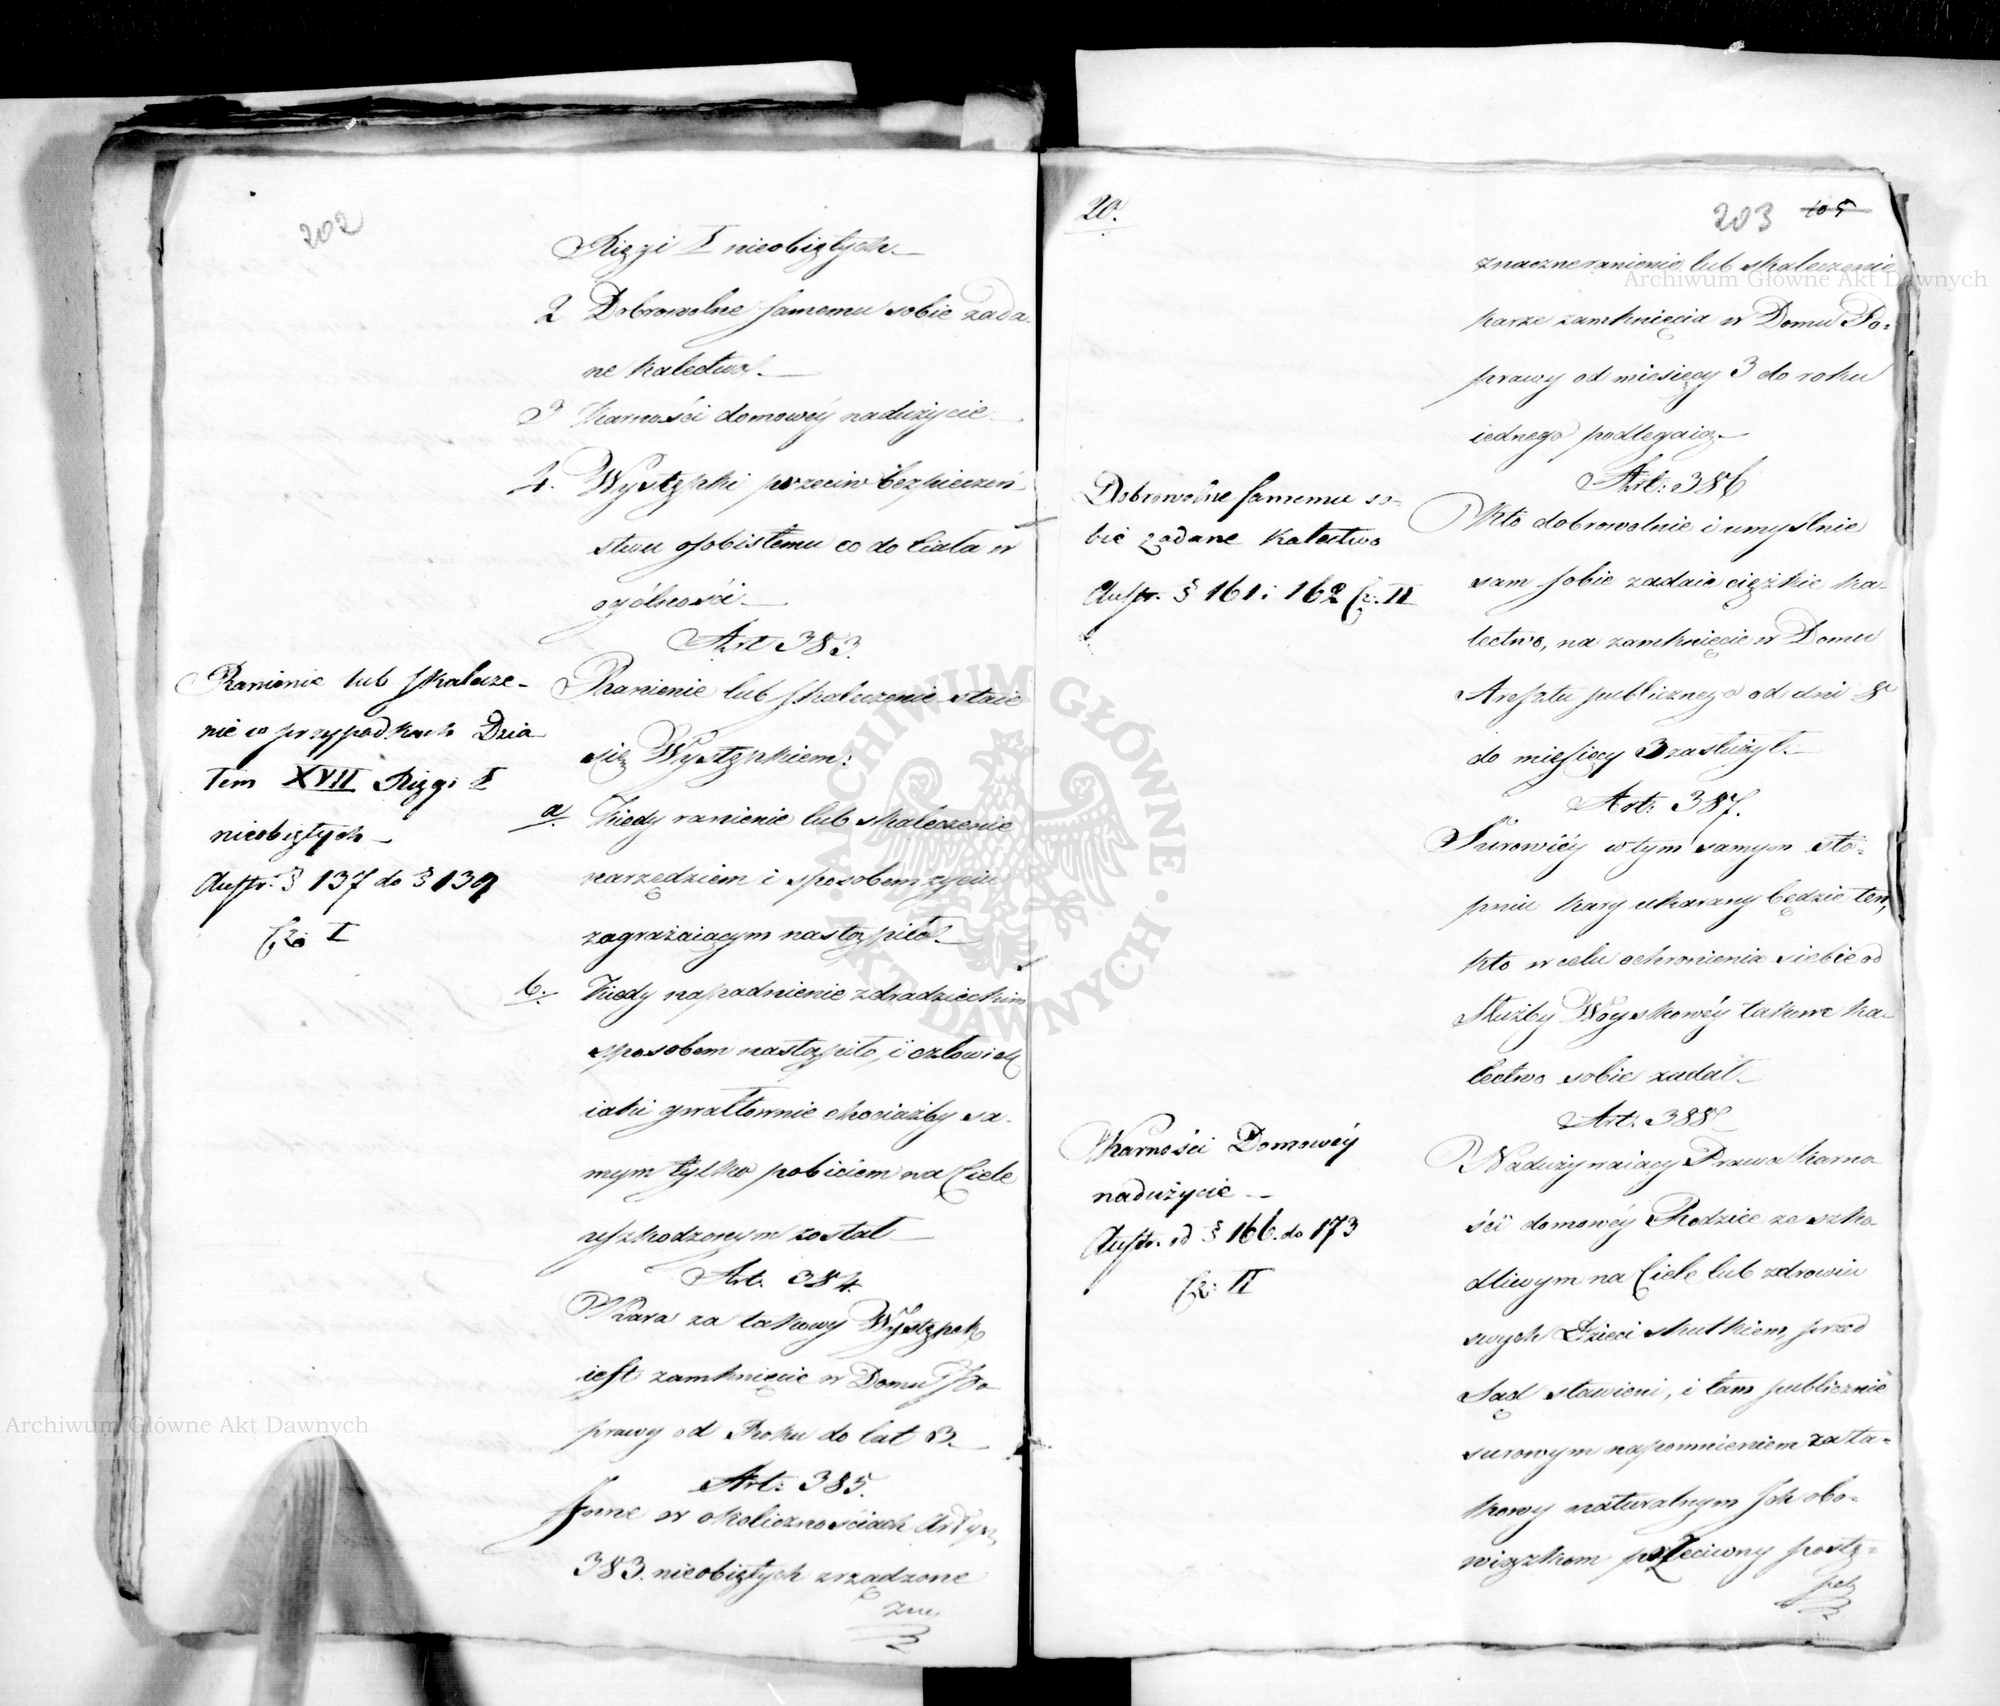 202
Xięgi I nieobiętych.
2 Dobrowolne samemu sobie zada-
ne kalectwo.
3 Karności domowéy nadużycie.
4. Występki przeciw bezpieczeń-
stwu osobistemu co do Ciała w
ogólności.
Art 383.
Ranienie lub skalecze-
nie w przypadkach Dzia-
łem XVII Xięgi I
nieobiętych
Austr. § 137 do § 139
Cz. I
Ranienie lub skaleczenie staie
się Występkiem:
a. Kiedy ranienie lub skaleczenie
narzędziem i sposobem życiu
zagrażaiącym nastąpiło.
b. Kiedy napadnienie zdradzieckim
sposobem nastąpiło, i człowiek
iaki gwałtownie chociażby sa-
mym tylko pobiciem na Ciele
uszkodzonym został
Art. 384.
Kara za takowy Występek
iest zamknięcie w Domu Po-
prawy od Roku do lat 3.
Art: 385.
Inne w okolicznościach Artyk,
383. nieobiętych zrządzone
zna
20.
203 105
znaczne ranienie lub skaleczenie
karze zamknięcia w Domu Po-
prawy od miesięcy 3 do roku
iednego podlegaią.
Art: 386
Dobrowolne samemu so-
bie zadane kalectwo
Austr. § 161 i 162 Cz. II
Kto dobrowolnie i umyślnie
sam sobie zadaie ciężkie ka-
lectwo, na zamknięcie w Domu
Aresztu publicznego od dni 8
do miesięcy 3 zasłużył.
Art: 387.
Surowiéy w tym samym sto-
pniu kary ukarany będzie ten,
kto w celu ochronienia siebie od
służby Woyskowéy takowe ka-
lectwo sobie zadał.
Art: 388
Karności Domowéy
nadużycie
Austr. od § 166. do 173
Cz: II
Nadużywaiący Prawa karno
ści domowéy Rodzice ze szko
dliwym na Ciele lub zdrowiu
swych Dzieci skutkiem, przed
Sąd stawieni, i tam publicznie
surowym napomnieniem za ta-
kowy naturalnym Ich obo-
wiązkom przeciwny postę-
pek
Archiwum Główne Akt Dawnych
Archiwum Główne Akt Dawnych
ARCHIWUM GŁÓWNE
AKT DAWNYCH